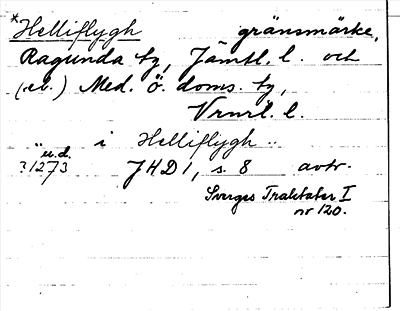 *Helliflygh gränsmärke,
Ragunda tg, Jämtl. l. och
(el.) Med. ö. doms. tg,
Vrnrl. l.
i Helliflygh ..
u.d.
? 1273 JHD 1, s. 8 avtr.
Sveriges Traktater I
nr 120.